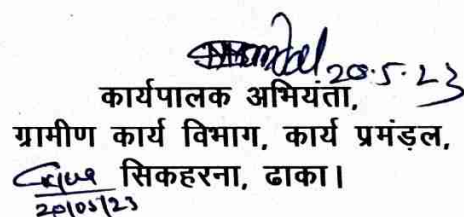 20.5.23
कार्यपालक अभियंता,
ग्रामीण कार्य विभाग, कार्य प्रमंड़ल,
सिकहरना, ढाका।
20/05/23